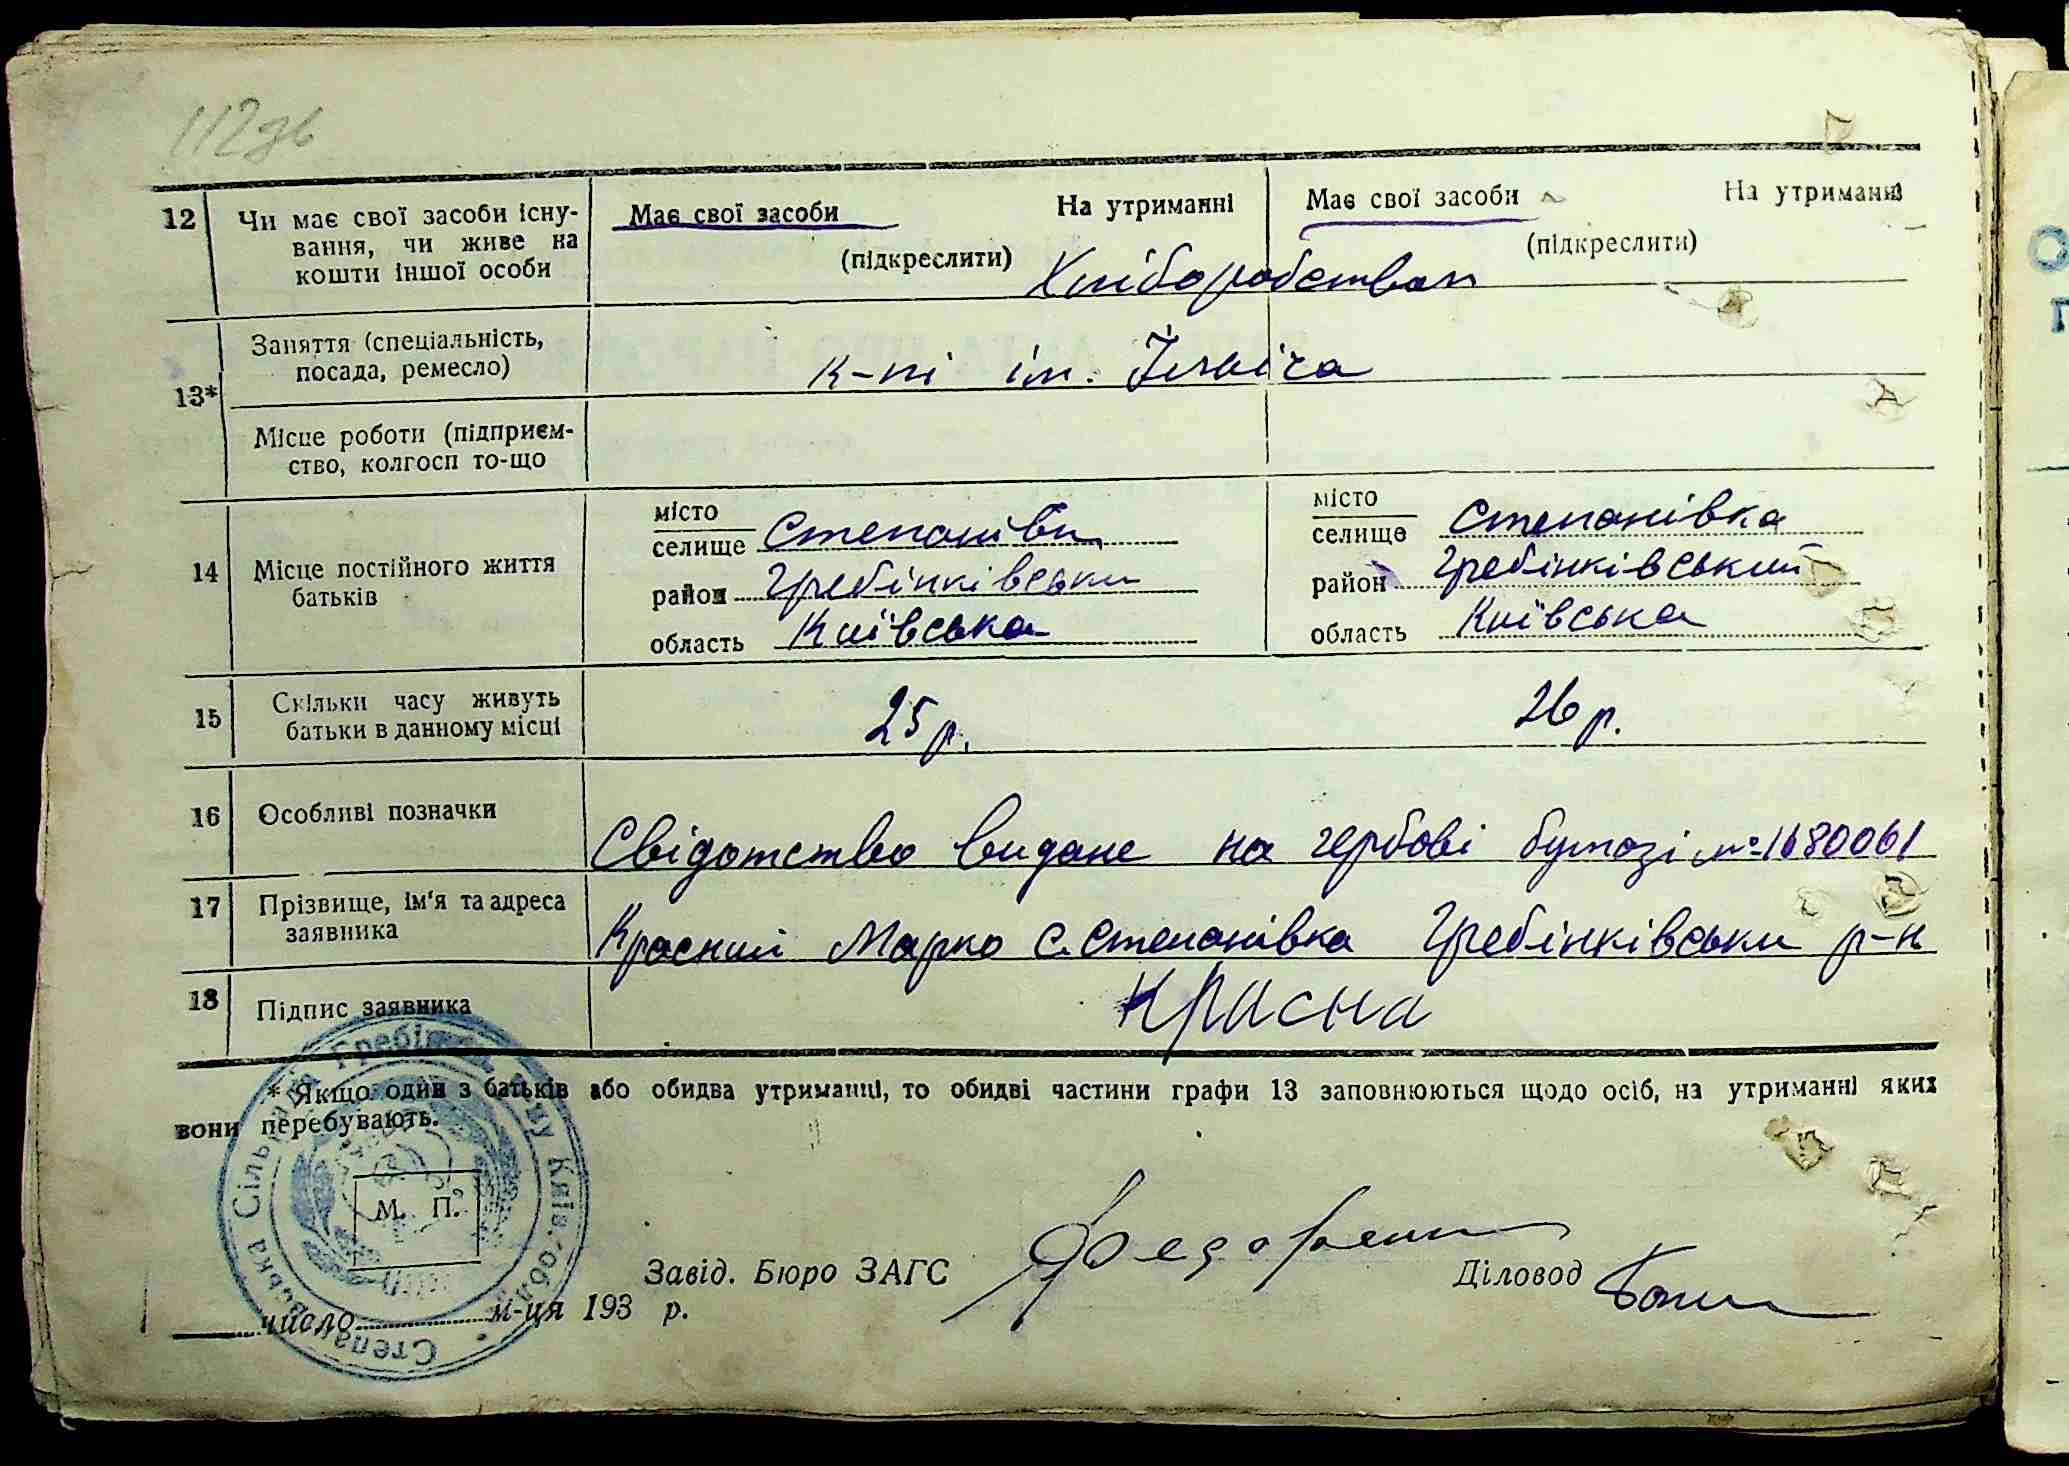 112зв
12 Чи має свої засоби існу- Має свої засоби На утриманні Має свої засоби На утриманні
вання, чи живе на (підкреслити) (підкреслити)
кошти іншої особи Хліборобством
Заняття (спеціальність,
посада, ремесло) к-пі ім. Ілліча
13*
Місце роботи (підприєм-
ство, колгосп то-що
місто місто
селище Степанівка селище Степанівка
14 Місце постійного життя район Гребінківськи район Гребінківський
батьків
область Київська область Київська
15 Скільки часу живуть 25 р. 26 р.
батьки в данному місці
16 Особливі позначки
Свідотство видане на гербові бумазі №1680061
17 Прізвище, ім'я та адреса
заявника Красний Марко с. Степанівка Гребінківськи р-н
18 Підпис заявника Красна
* Якщо один з батьків або обидва утриманці, то обидві частини графи 13 заповнюються щодо осіб, на утриманні яких
вони перебувають.
М. П.
Завід. Бюро ЗАГС Діловод
число м-ця 193 р.